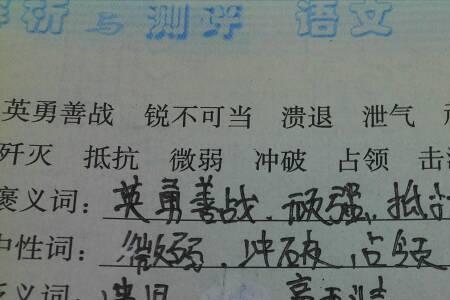 析与测评 语文
英勇善战 锐不可当 溃退 泄气
歼灭 抵抗 微弱 冲破 占领 击
褒义词：英勇善战、顽强、抵
中性词：微弱、冲破、占领
义词：溃退